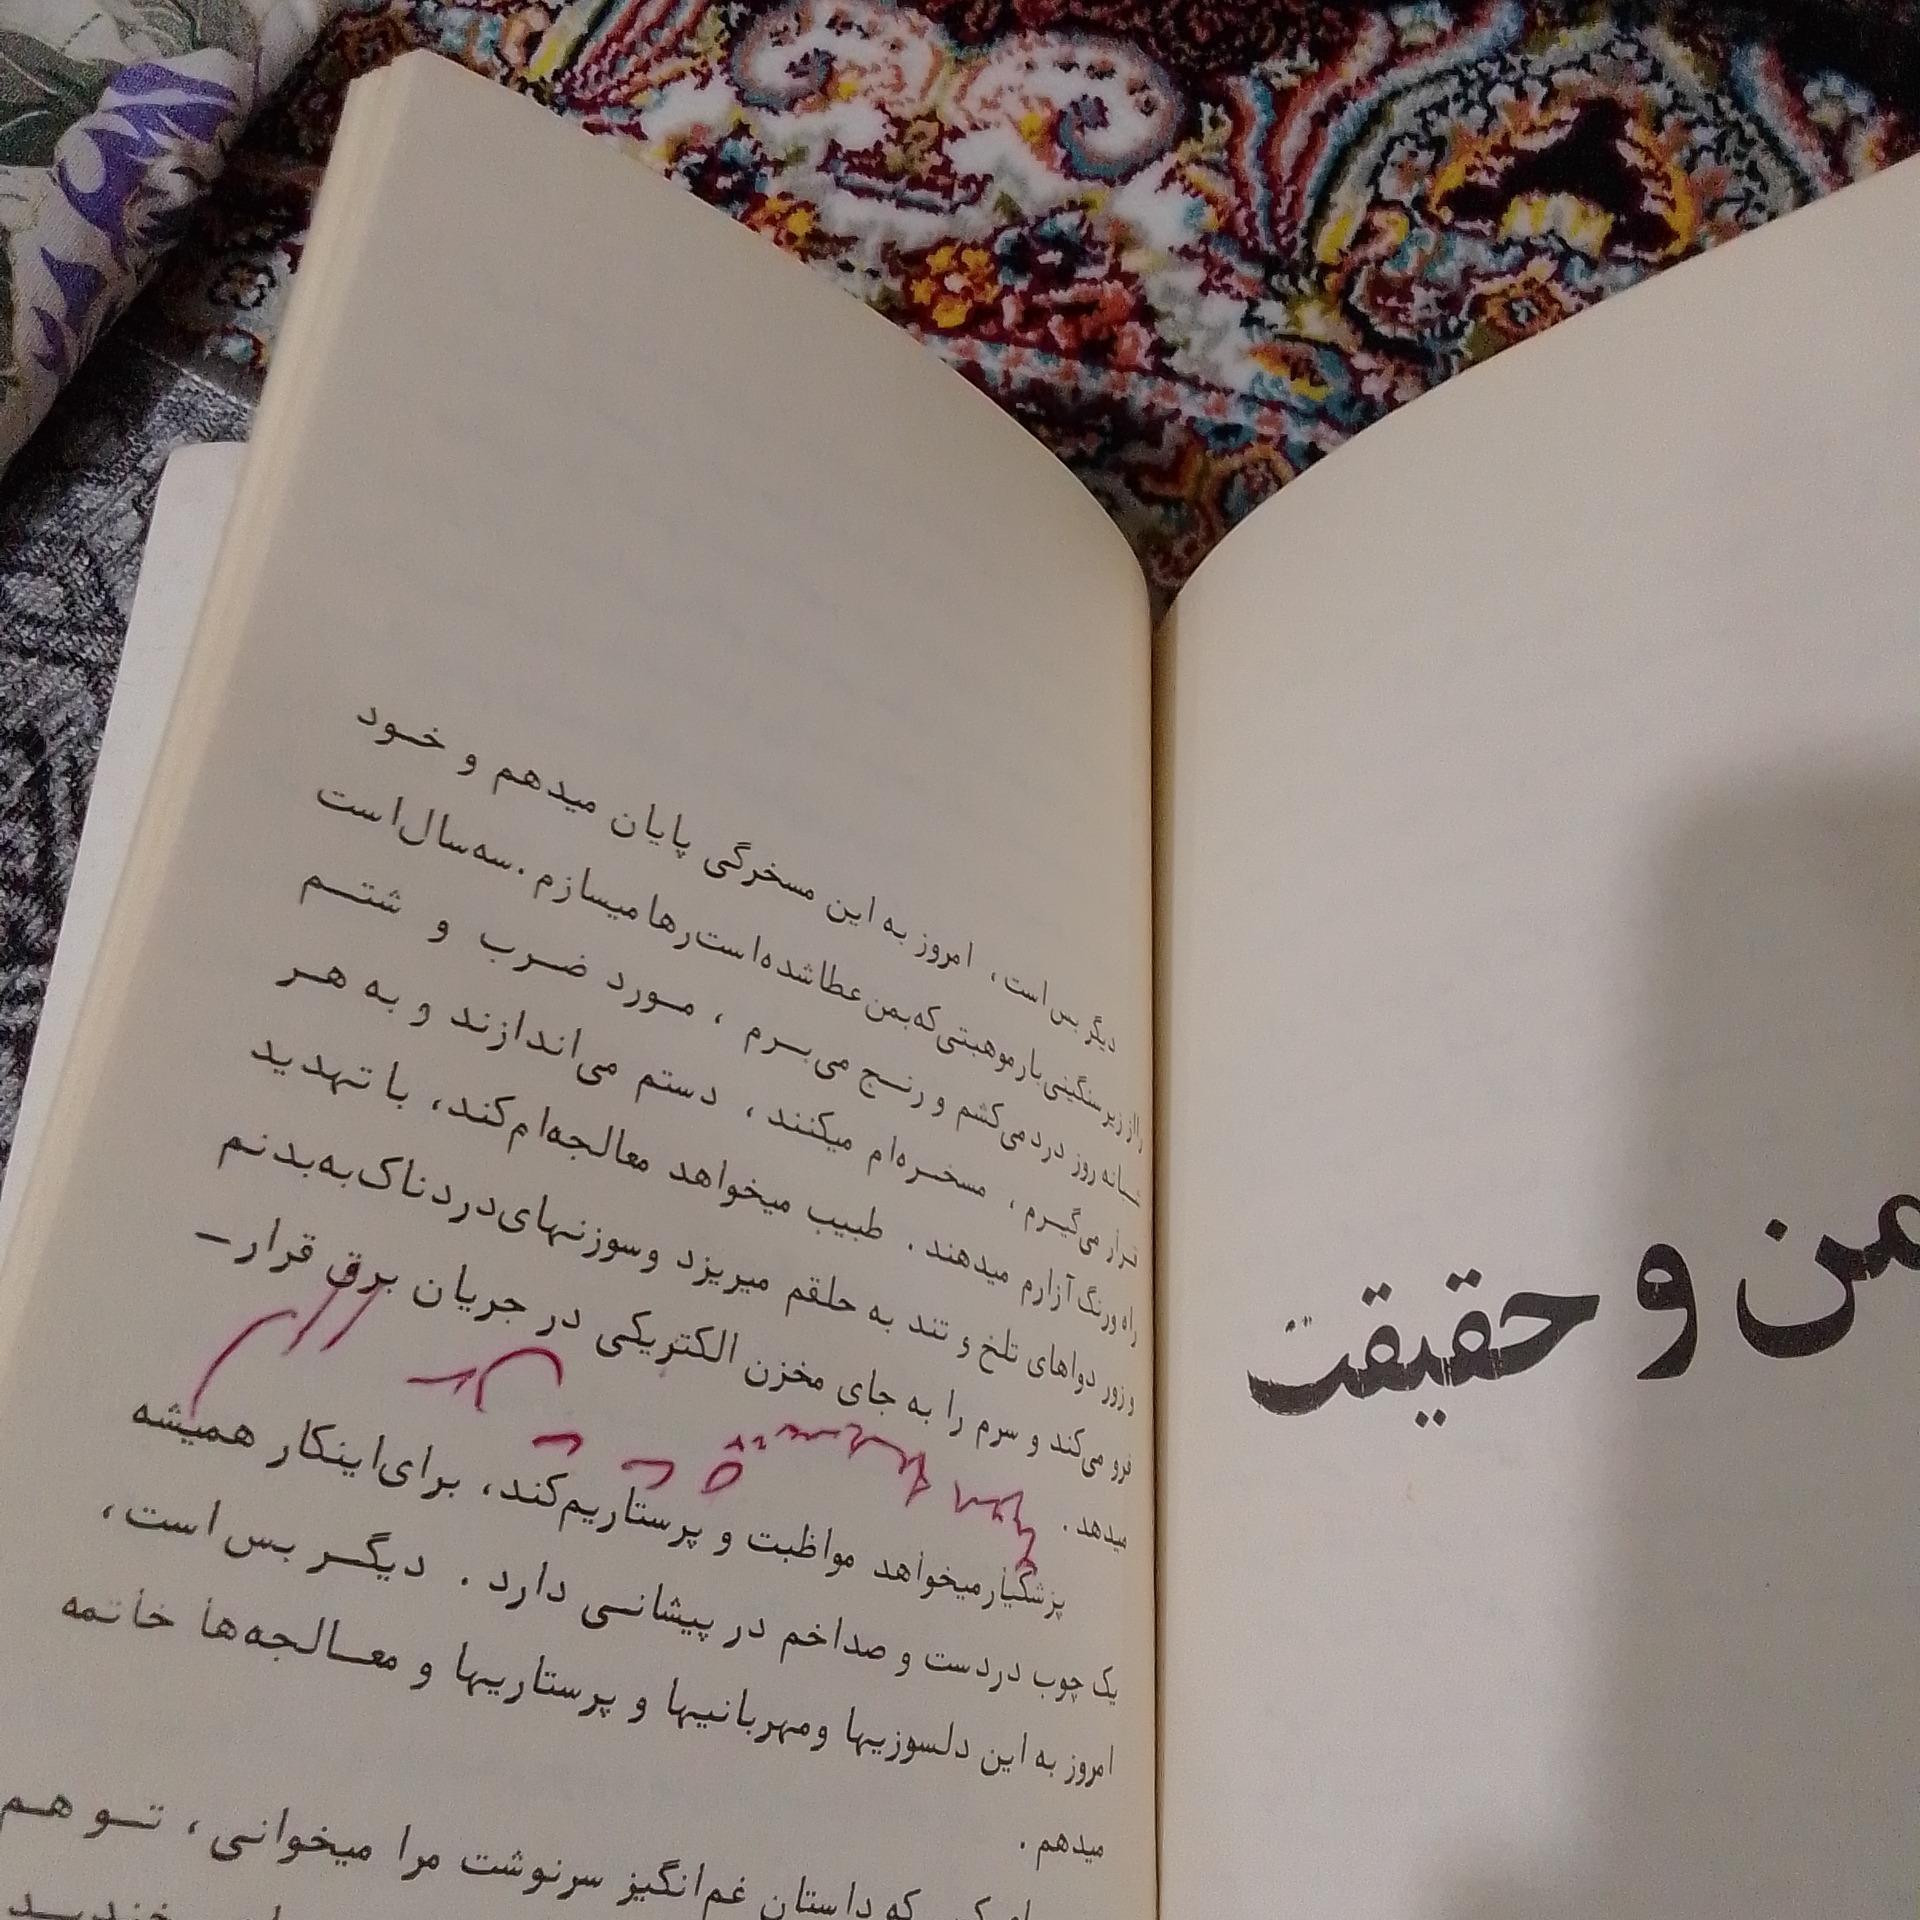 من و حقیقت
دیگر بس است، امروز به این مسخرگی پایان میدهم و خود
را از زیر سنگینی بار موهبتی که بمن عطا شده است رها میسازم. سه سال است
شبانه روز درد می‌کشم و رنج می‌برم، مورد ضرب و شتم
قرار می‌گیرم، مسخره‌ام میکنند، دستم می‌اندازند و به هر
راه ورنگ آزارم میدهند. طبیب میخواهد معالجه‌ام کند، با تهدید
و زور دواهای تلخ و تند به حلقم میریزد و سوزنهای دردناک به بدنم
فرو می‌کند و سرم را به جای مخزن الکتریکی در جریان برق قرار-
میدهد.
پزشگیار میخواهد مواظبت و پرستاریم کند، برای اینکار همیشه
یک چوب در دست و صد اخم در پیشانی دارد. دیگر بس است،
امروز به این دلسوزیها و مهربانیها و پرستاریها و معالجه‌ها خاتمه
میدهم.
که داستان غم‌انگیز سرنوشت مرا میخوانی، تو هم
خندید